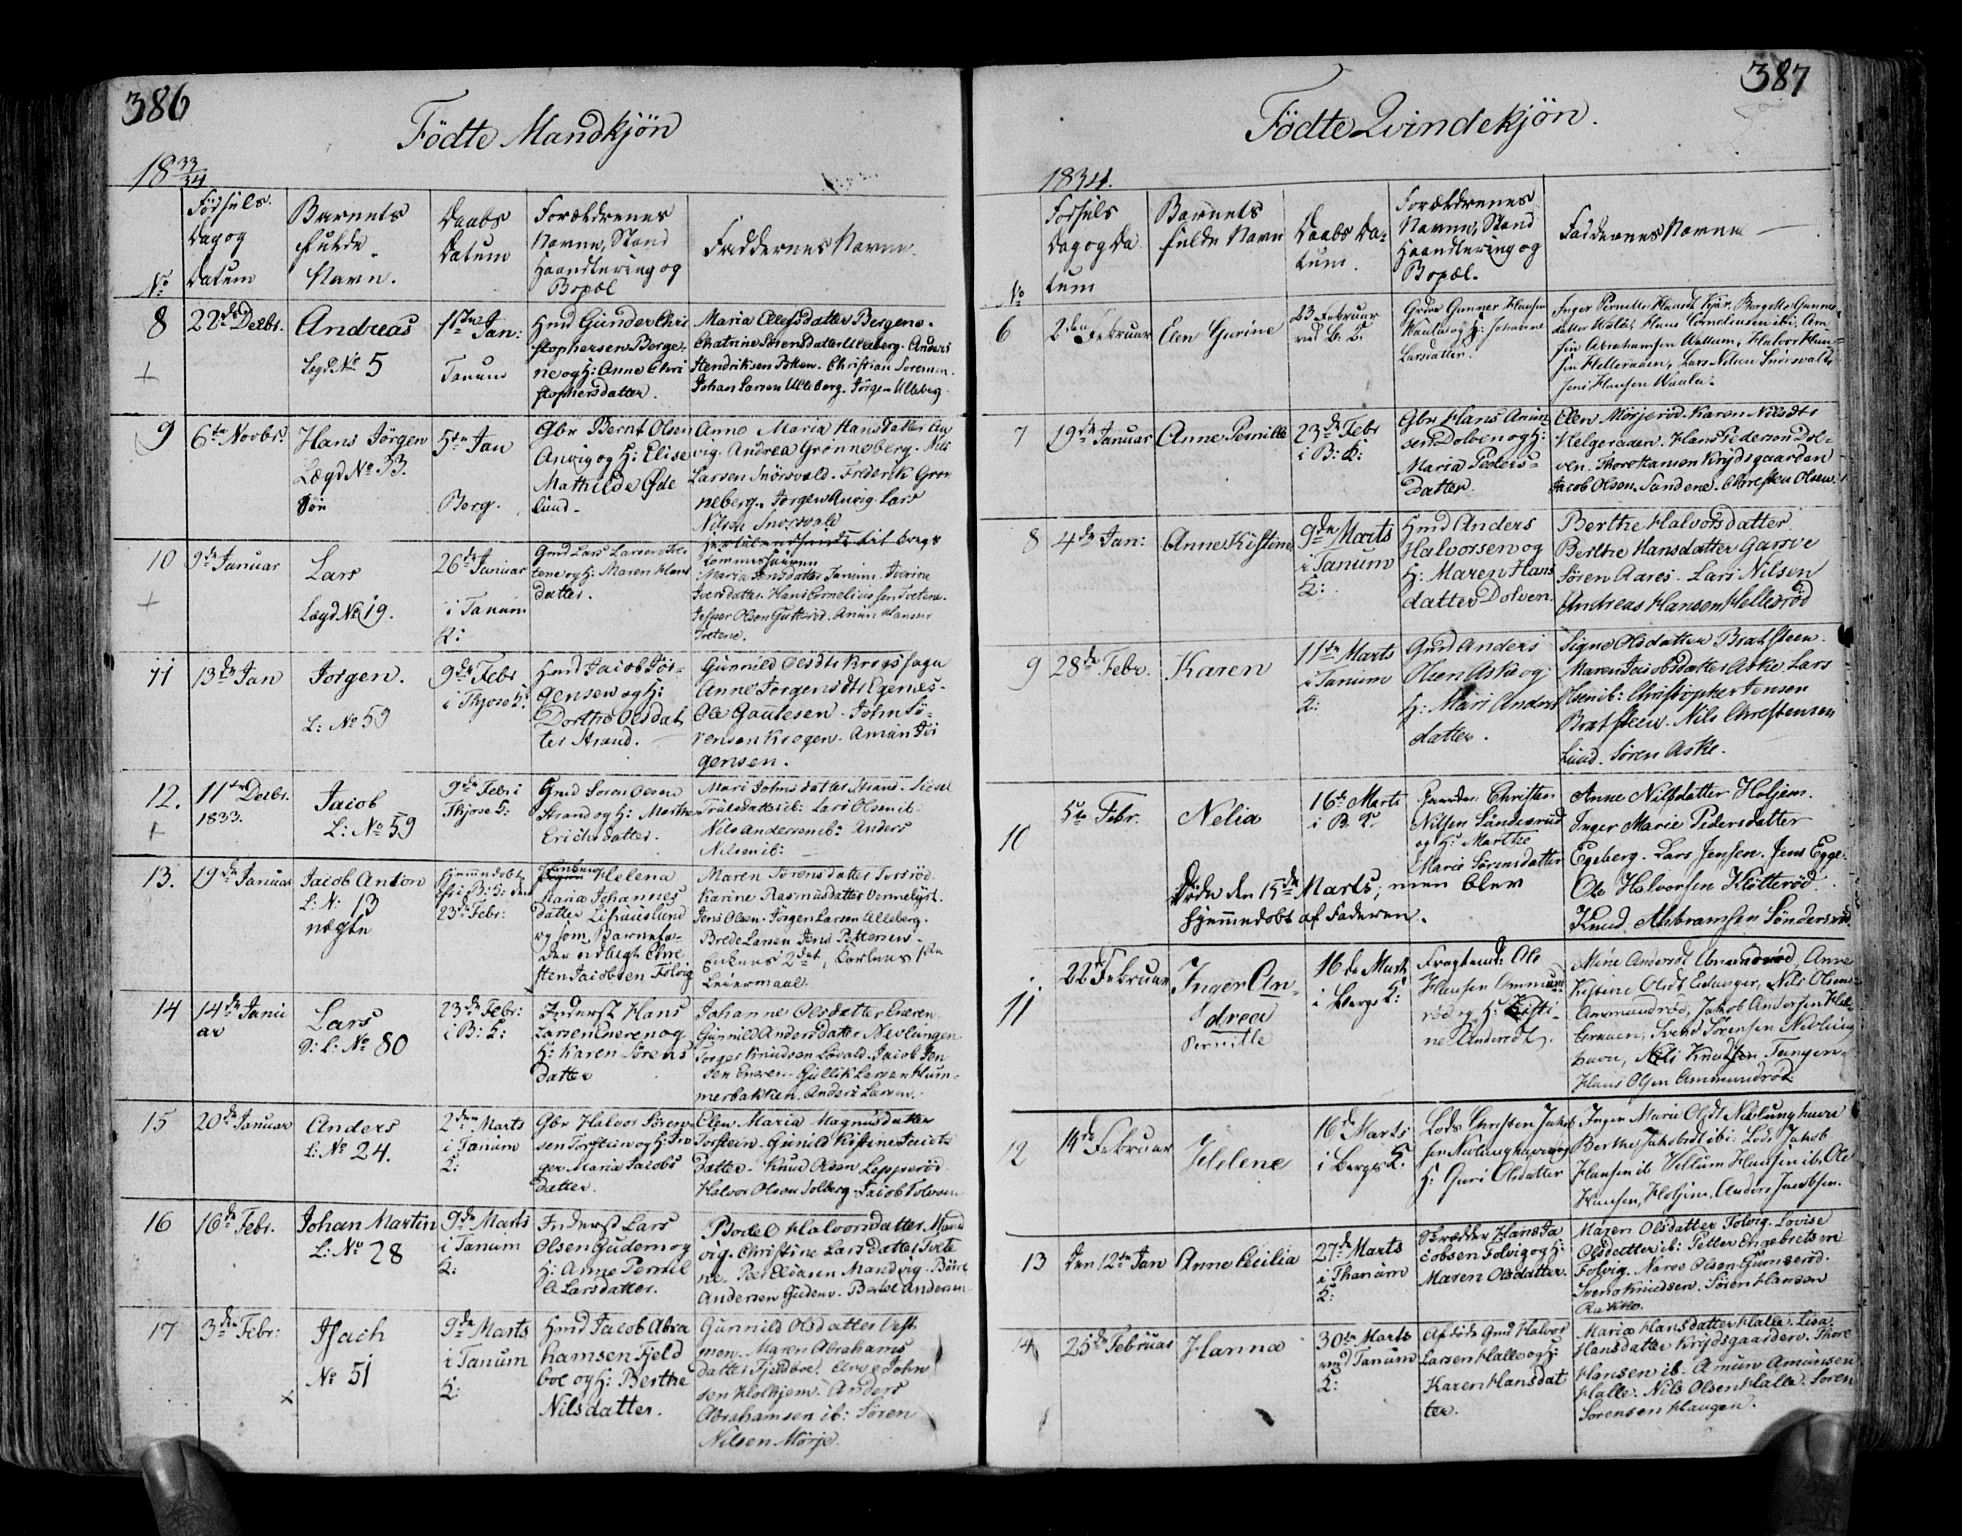 386
Fødte Mandkjøn
18 33/34
No
Fødsels
Dag og
Datum
Barnets
fulde
Navn.
Daabs
Datum
Forældrenes
Navne, Stand
Haandtering og
Bopæl
Faddernes Navne.
8
22de Decbr.
Andreas
Lægd No 5
1ste Jan:
Tanum
Hmd Gunder Chri
stophersen Berge-
ne og H: Anne Chri
stophersdatter.
Maria Ellefsdatter Bergene.
Chatrine Sørensdatter Ulleberg. Anders
Hendriksen Christian Sørensen.
Johan Larsen Ulleberg. Jørgen Ulleberg
9
6te Novbr.
Hans Jørgen
Lægd No 33.
Søn
5te Jan
Berg.
Gbr Bernt Olsen
Anvig og H: Elise
Mathilde Øde
lund-
Anne Maria Hansdatter An
vig. Andrea Grønneberg. Nils
Larsen Snørsvald. Frederik Grøn
neberg. Jørgen Anvig. Lars
Nilsen Snørsvald
10
9de Januar
Lars
Lægd No 19.
26de Januar
i Tanum
K:
Gmd Lars Larsen Tve
tene og H: Maren Hans
datter.
Maria Jensdatter Tanum. Iverine
Iversdatter. Hans Corneliussen Tvetene.
Jesper Olsen Amun Hansen
Tvetene.
11
13de Jan
Jørgen.
L: No 59
9de Febr
i Thjøse K:
Hmd Jacob Jør-
gensen og H:
Dorthe Olsdat
ter Strand.
Gunnild Olsdtr Krogsfaga
Anne Jørgensdtr Egenes-
Ole Gautesen. John Sø-
rensen Krogen. Amun Jør
gensen.
12.
11te Decbr.
1833.
Jacob
L: No 59
9de Febr i
Thjøse K:
Gmd Søren Olsen
Strand og H: Marthe
Erichsdatter.
Mari Johnsdatter Strand. Sissel
Trulsdatter ib: Lars Olsen ib-
Nils Andersen ib: Anders
Nilsen ib:
13.
19de Januar
Jacob Anton
L: N: 13
nægte
Hjemmedøbt
23de Febr:
Helena
Maria Johannes
datter
og som Barnefa-
der udlagt Chre
sten Jacobsen Folvig
Maren Sørensdatter Torsrød.
Karine Rasmusdatter Vennelyst.
Jens Olsen. Jørgen Larsen Ulleberg.
Brede Larsen Jens Pettersen.
Enkens 2det, Karlens 1ste
Leiermaal.
14
14de Janu
ar
Lars
L: No 80
23de Febr:
i B: K:
Inderst Hans
Larsen Eneren og
H: Karen Sørens
datter
Johanne Olsdatter Eneren.
Gunnild Andersdatter Nevlungen
Jørgen Knudsen Løvald. Jacob Jen
sen Eneren. Gullik Larsen Hum-
merbakken. Anders Larsen.
15
20de Januar
Anders
L: No 24.
2den Marts
i Tanum
K:
Gbr Halvor Søren
sen Torstein og H: In
ger Maria Jacobs
datter.
Elen Maria Magnusdatter
Torstein. Gunild Kistine Jacobs
datter. Knud Olsen Lepperød
Halvor Olsen Solberg. Jacob Tolvsen
16
16de Febr.
Johan Martin
L: No 28
9de Marts
i Tanum
K:
Inderst Lars
Olsen Guden og
H: Anne Pernil
le Larsdatter.
Bodel Halvorsdatter Mand
vig. Christine Larsdatter Tvete
ne. Peer Eliasen Mandvig. Børre
Andersen Guden. Berthe Andersen
17
3de Febr:
Isach
No 51
9de Marts
i Tanum
K:
Hmd Jacob Abra
hamsen Fjeld
boe og H: Berthe
Nilsdatter.
Gunnild Olsdatter
men. Maren Abrahams
datter Fjeldboe. Arve John
sen Holhjem. Anders
Abrahamsen ib: Søren
Nilsen Mørje
387
Fødte Qvindekjøn.
1834.
No
Fødsels
Dag og Da
tum
Barnets
fulde Navn
Daabs Da-
tum.
Forældrenes
Navne, Stand
Haandtering og
Bopæl.
Faddernes Navne
6
2den Februar
Elen Gurine
23 Februar
ved B. K.
Gunner Hansen
Waale og H: Johanne
Larsdatter.
Inger Pernille Hansdt Kjær. Bergitte Gunners
datter Wale, Hans Corneliusen ibi, Am
fin Abrahamsen Wallum, Halvor Han-
sen Helleraaen, Lars Nilsen Snørsvald
Jens Hansen Waale.
7
19de Januar
Anne Pernille
23de Febr
i B: K:
Gbr Hans Amun
sen Dolven og H:
Maria Peders-
datter.
Elen Mørjerød. Karen Nilsdtr
Helgeraaen. Hans Pederson Dol-
ven. Thore Hansen Krydsgaarden
Jacob Olsen Sandene. Christen Olsen
8
4de Jan:
Anne Kistine
9de Marts
i Tanum
K:
Hmd Anders
Halvorsen og
H: Maren Hans
datter Dolven.
Berthe Halvorsdatter
Berthe Hansdatter
Søren Aares. Lars Nilsen
Andreas Hansen Hellesrød
9
28de Febr.
Karen
11te Marts
i Tanum
K:
Gmd Anders
Olsen Aske og
H: Mari Anders
datter.
Signe Olsdatter Bratsteen.
Maren Jacobsdatter Aske Lars
Olsen ib: Christopher Jensen
Bratsteen. Nils Chrestensen
Lund. Søren Aske.
10
5te Febr.
Nelia
16de Marts
i B. K.
Christen
Nilsen Søndersrud
og H: Marthe
Marie Sørensdatter
Døde den 15de Marts, men blev
hjemmedøbt af Faderen.
Anne Nilsdatter Holjem.
Inger Marie Pedersdatter
Egeberg. Lars Jensen. Jens Egge-
Ole Halvorsen Klotterød.
Knud Abramsen Søndersrud.
11
22de Februar
Inger An-
drea
Pernille
16de Marts
i Bergs K:
Fragtemd: Ole
Hansen Ommun
rød og H: Kisti-
ne Andersdt.
Mine Andersdt Ommundrød, Anne
Kistine Olsdt Nils Olsen
Ommundrød, Jakob Andersen Hel-
geraaen, Svend Sørensen Nevlung
havn, Nils Knudsen Tangen.
Hans Olsen Ommundrød.
12
14de Februar
Helene
16de Marts
i Bergs K:
Lods Christen Jakob
sen Nevlunghavn og
H: Guri Olsdatter
Inger Maria Olsdt Nevlunghavn
Berthe Jakobsdt ibi: Lods Jakob
Hansen ib Villum Hansen ib, Ole
Hansen, Holjem, Anders Jacobsen.
13
den 12te Jan
Anne Cecilia
27de Marts
i Thanum
K:
Skrædder Hans Ja
cobsen Folvig og H:
Maren Olsdatter.
Maren Olsdatter Folvig. Lovise
Olsdatter ib: Petter Engebretsen
Folvig. Narve Olsen Gumserød.
Iver Knudsen. Søren Hansen
Rakke.
14
25de Februar
Hanna
30te Marts
ved Tanum
K:
Afdøde Gmd Halvor
Larsen Halle og H:
Karen Hansdat
ter.
Maria Hansdatter Halle. Lisa
Hansdatter Krydsgaarden. Thore
Hansen ib. Amun Amunsen
Halle. Nils Olsen Halle. Søren
Sørensen Haugen.